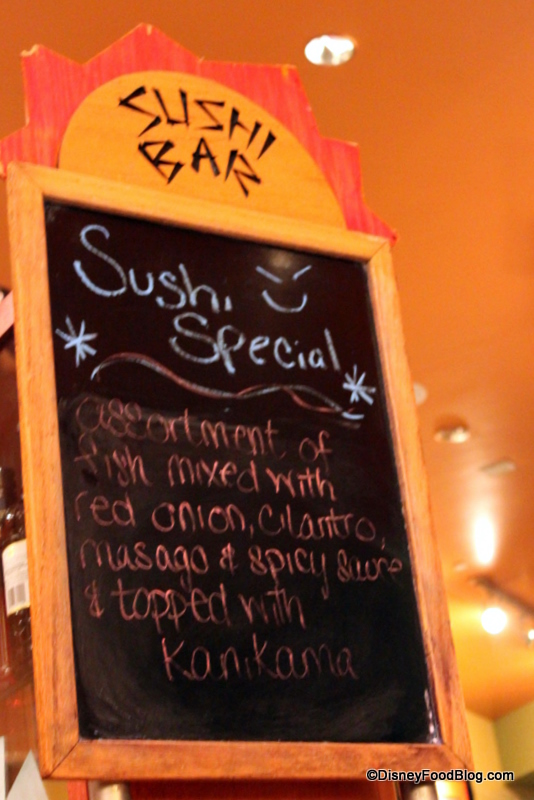 SUSHI
BAR
Sushi
Special
assortment of
fish mixed with
red onion, cilantro,
masago & spicy sauce
& topped with
Kanikama
©DisneyFoodBlog.com